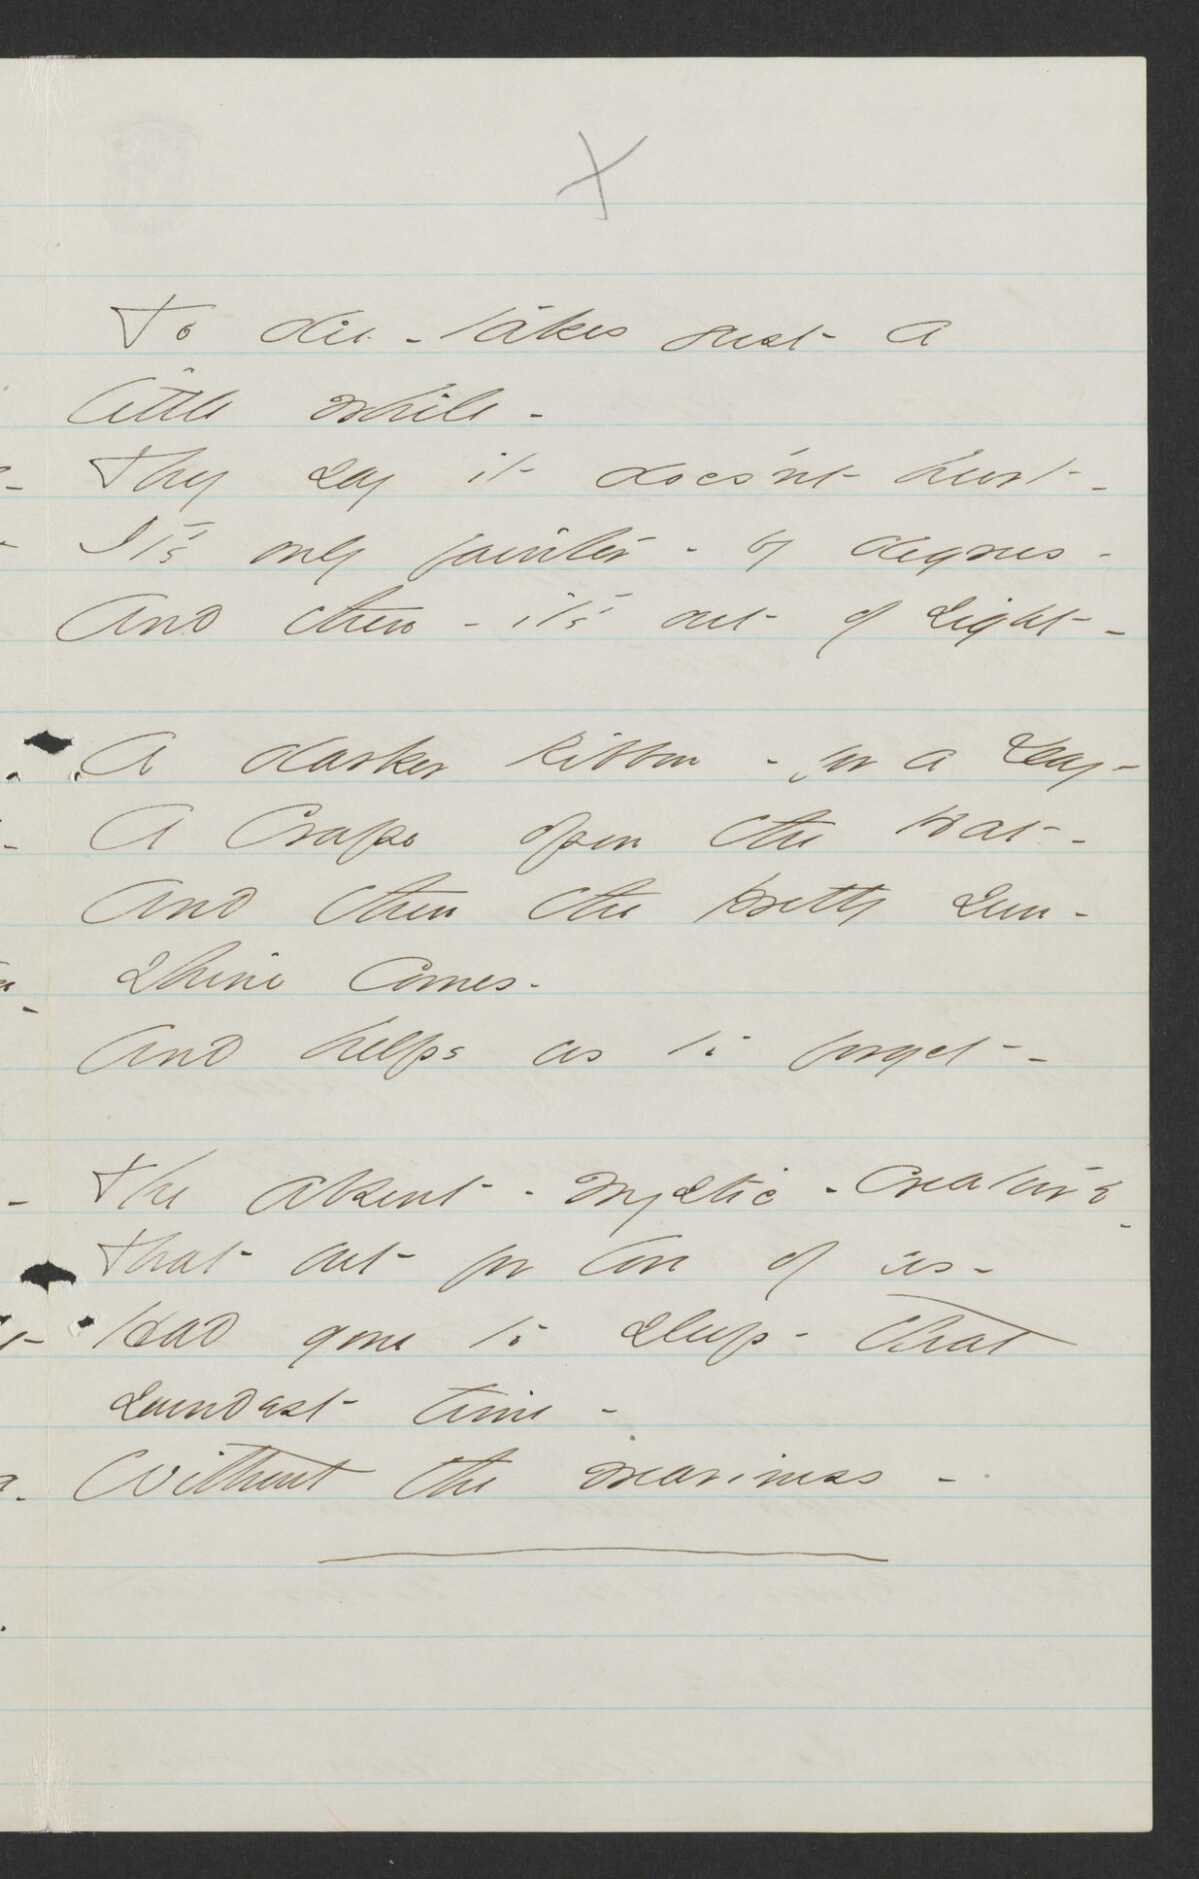 To die - takes just a
little while -
They say it does'nt hurt -
It's only fainter - by degrees -
And then - it's out of sight -
A darker Ribbon - for a Day -
A Crape upon the Hat -
And then the pretty sun-
shine comes -
And helps us to forget -
The absent - mystic - creature -
That but for love of us -
Had gone to sleep - that
soundest time -
Without the weariness -